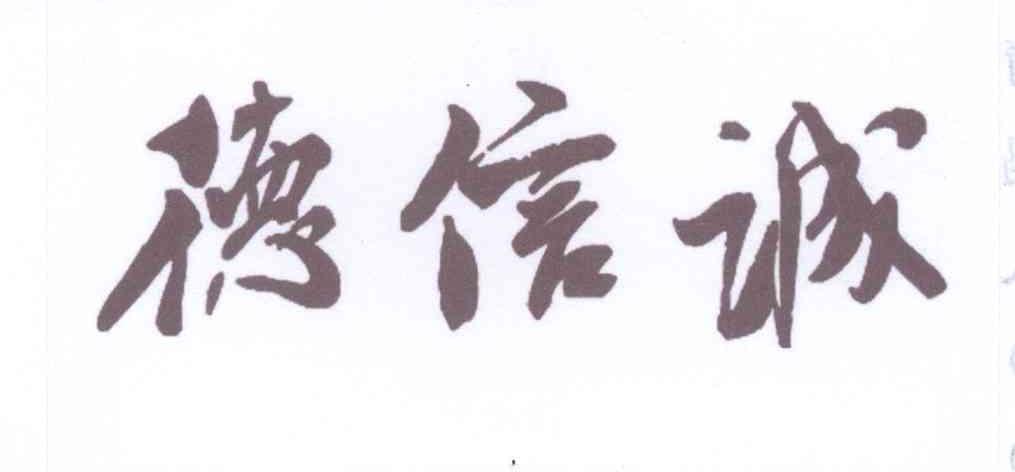 德信诚